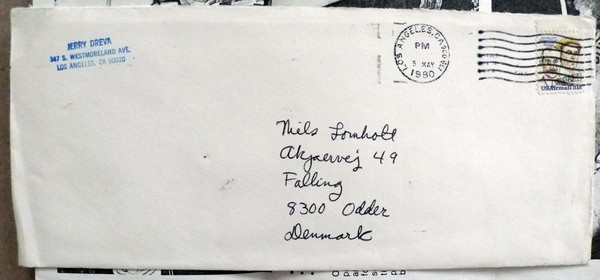 JERRY DREVA
347 S. WESTMORELAND AVE.
LOS ANGELES, CA 90020
LOS ANGELES, CA
PM
5 MAY
1980
USAirmail
Niels Lomholt
Akjaervej 49
Falling
8300 Odder
Denmark